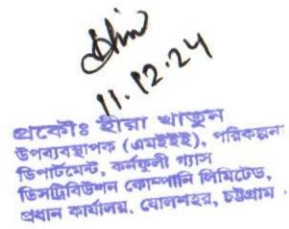 11.12.24
প্রকৌঃ হীরা খাতুন
উপব্যবস্থাপক (এমইইই), পরিকল্পনা
ডিপার্টমেন্ট, কর্ণফুলী গ্যাস
ডিসট্রিবিউশন কোম্পানি লিমিটেড,
প্রধান কার্যালয়, ষোলশহর, চট্টগ্রাম .